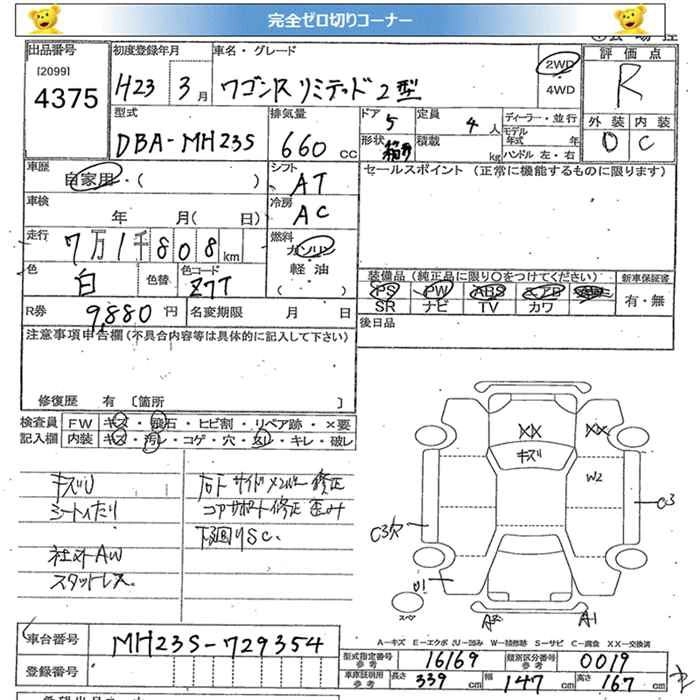 完全ゼロ切りコーナー
出品番号
[2099]
4375
初度登録年月
H23年3月
車名・グレード
ワゴンR リミテッド2型
2WD
4WD
評価点
R
型式
DBA-MH23S
排気量
660 CC
ドア
5
定員
4人
形状
積載
kg
ディーラー・並行
モデル年式 年
ハンドル 左・右
外装
D
内装
C
車歴
自家用・( )
シフト
AT
セールスポイント (正常に機能するものに限ります)
車検
年 月( 日)
冷房
AC
走行
7万1千808km
燃料
ガソリン
軽油
( )
色
白
色替
色コード
Z7T
装備品(純正品に限り○をつけてください)
新車保証書
PS
PW
ABS
エアB
有・無
SR
ナビ
TV
カワ
R券
9,880円
名変期限 月 日
後日品
注意事項申告欄(不具合内容等は具体的に記入して下さい)
修復歴 有 〔箇所 〕
検査員記入欄
FW
キズ・飛石・ヒビ割・リペア跡・×要
内装
キズ・汚れ・コゲ・穴・欠し・キレ・破レ
キズU
シートへたり
社外AW
スタットレス
フロトサイドメンバー修正
コアサポート修正 歪み
下廻りSC.
XX
XX
キズ
W2
C3
C3欠
U1
スペア
A2
A1
A-キズ E-エクボ U-凹み W-補修跡 S-サビ C-腐食 XX-交換済
車台番号
MH23S-729354
型式指定番号参考
16169
類別区分番号参考
0019
登録番号
車庫証明用参考
長さ 339 cm
幅 147 cm
高さ 167 cm